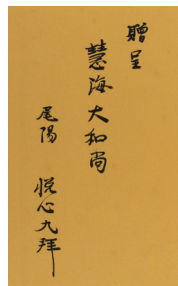 贈呈
慧海大和尚
尾陽 悦心九拜